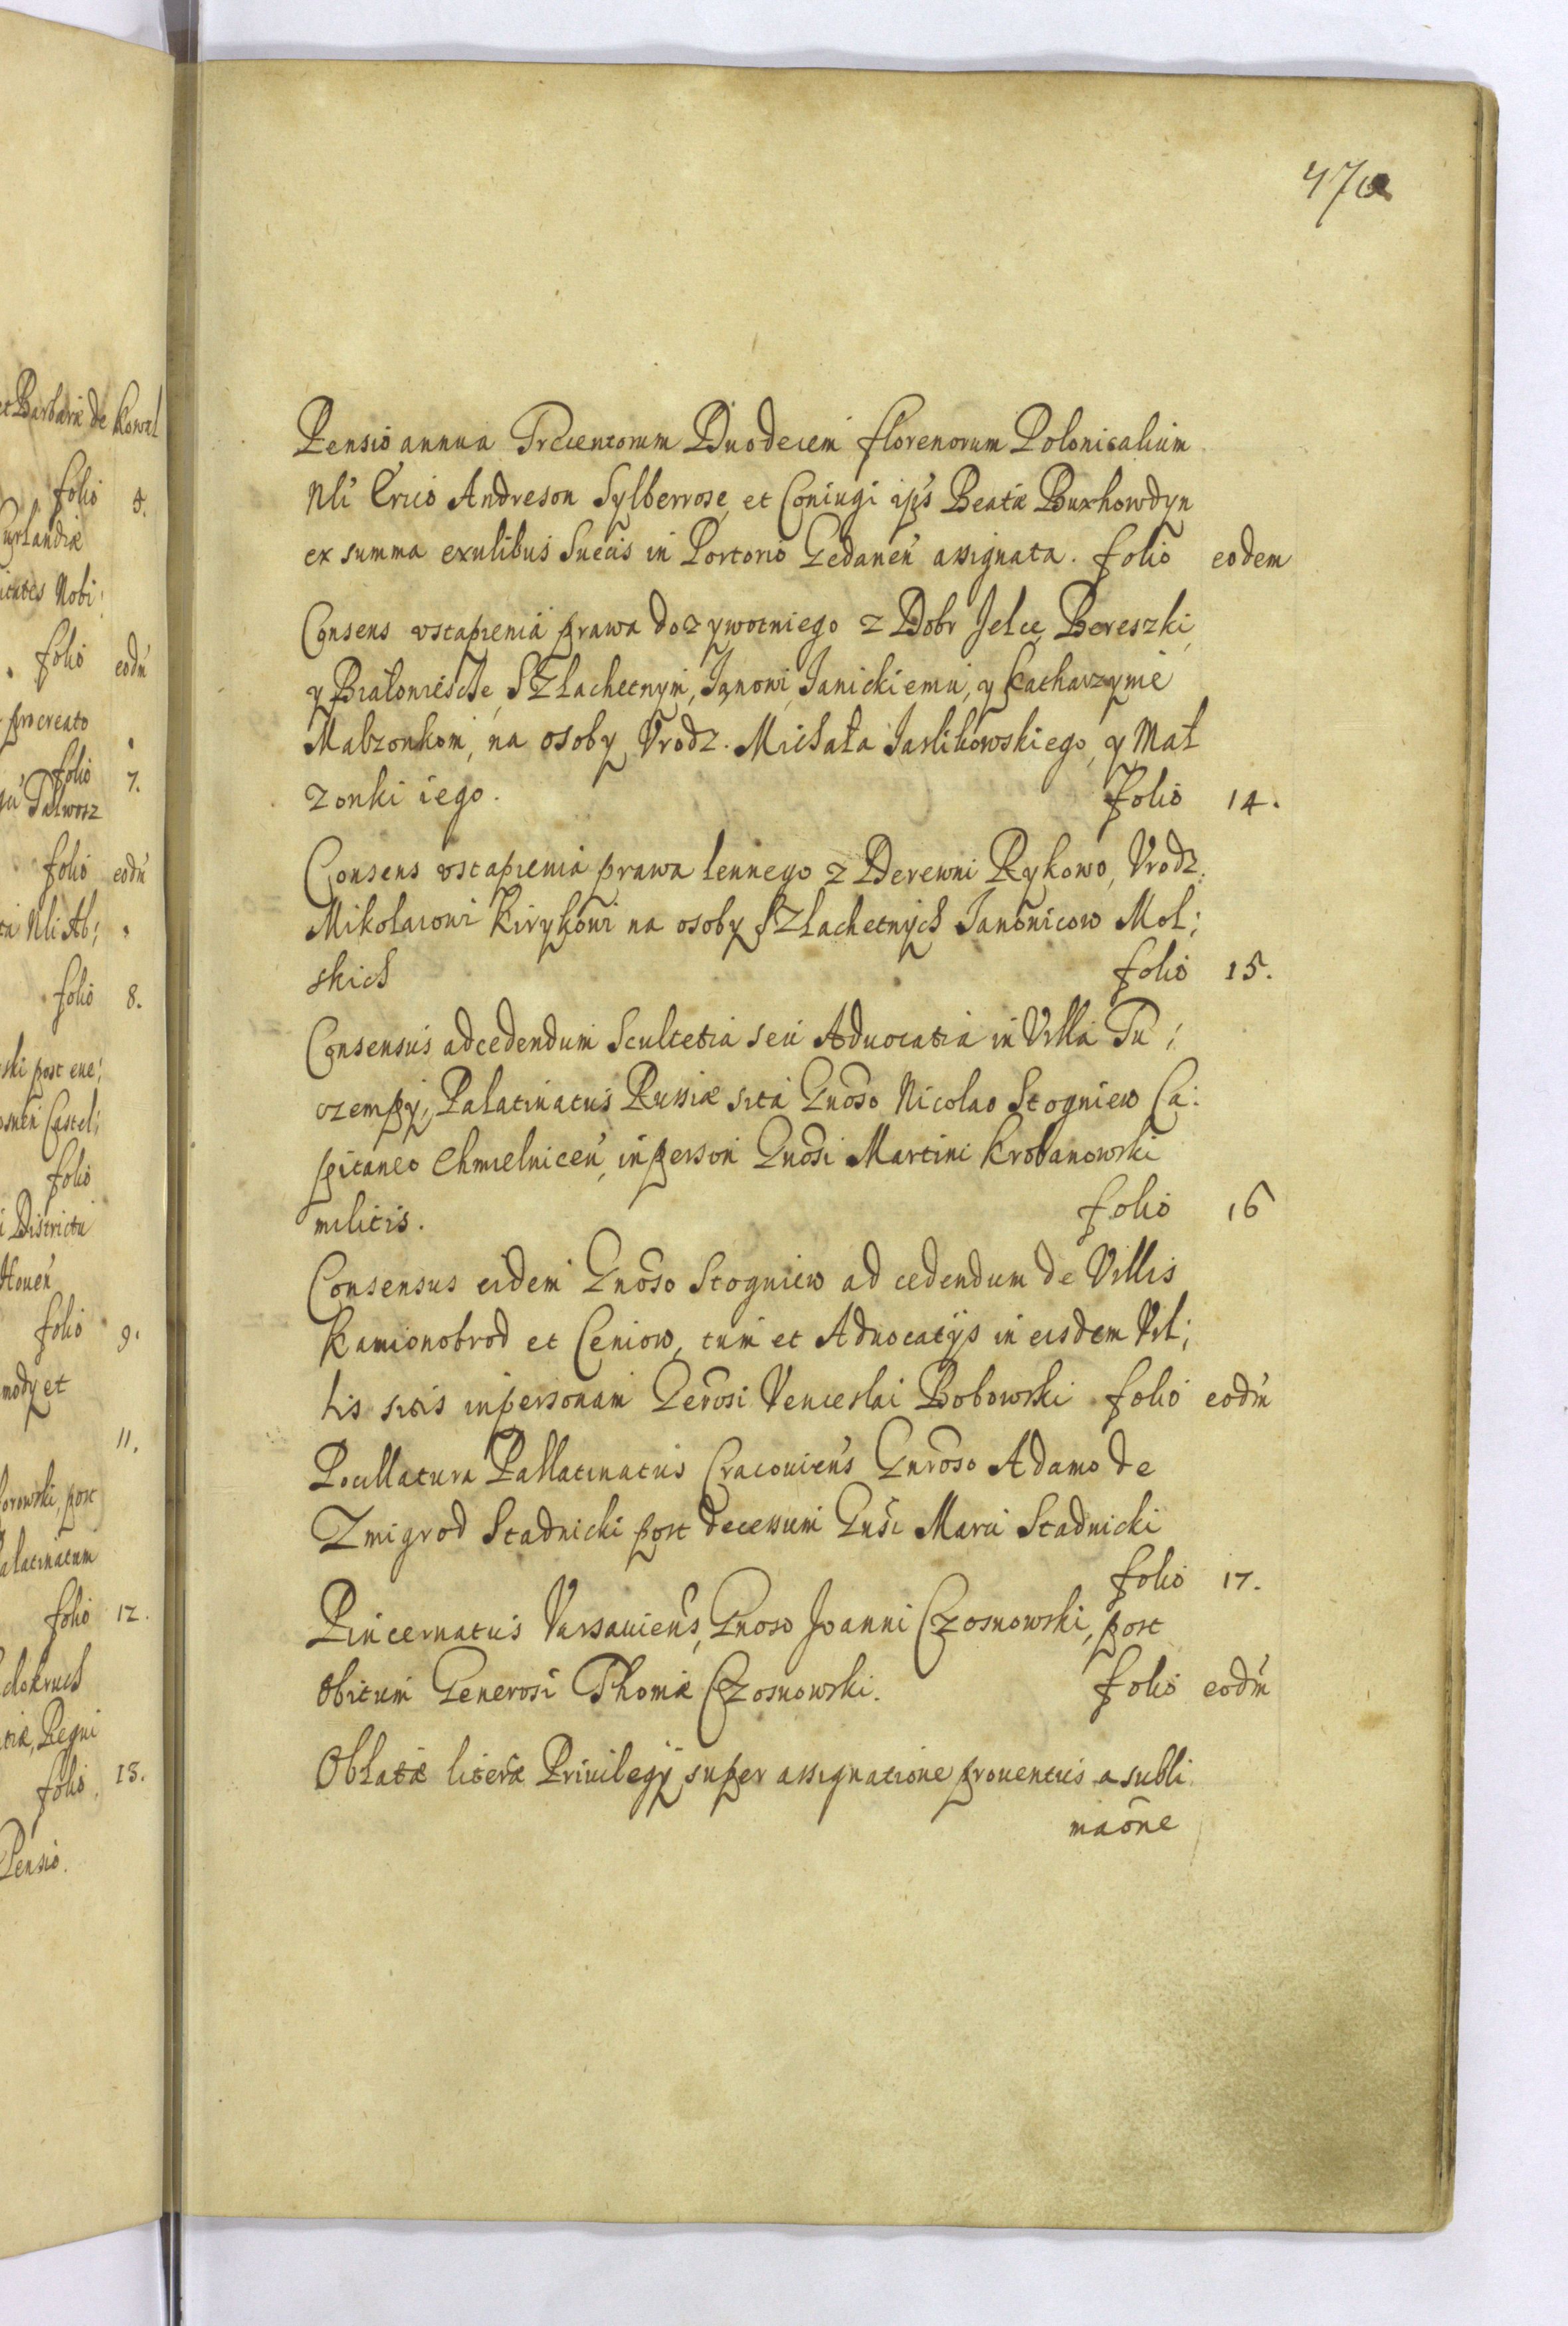 et Barbaræ de Kowal
folio 5.
Curlandiæ
Nobi:
folio eodḿ
procreato
folio 7.
Talwosz
folio eodḿ
Nli Ab;
folio 8.
ski post ene;
Castel;
folio
i Districtu
folio 9.
et
11.
post
alatinatum
folio 12.
Regni
folio 13.
Pensio.
47a
Pensio annua Trecentorum Duodecem florenorum Polonicalium
Nli Erico Andreson Sylberrose, et Coniugi ips Beatæ Buxhowdyn
ex summa exulibus Suecis in Portorio Gedanen assignata. folio eodem
Consens vstapienia prawa dozywotniego z Dobr Jelce, Bereszki,
y Białomiescie, SZlachetnym, Janowi Janickiemu, y Katharzynie
Malzonkom, na osoby Vrodz. Michała Jaslikowskiego, y Mał
zonki iego. folio 14.
Consens vstapienia prawa lennego z Derewni Rykowo, Vrodz.
Mikołaiowi Kirykowi na osoby SZlachetnych Janonicow Mol;
skich folio 15.
Consensus adcedendum Scultetia seu Aduocatia in Villa Tu;
czempy, Palatinatus Russiæ sita Gnoso Nicolao Stogniew Ca:
pitaneo Chmielnicen, in person Gnosi Martini Krobanowski
militis. folio 16
Consensus eidem Gnoso Stogniew ad cedendum de Villis
Kamionobrod et Ceniow, tum et Aduocatijs in eisdem Vil;
lis sitis inpersonam Gerosi Venceslai Bobowski folio eodḿ
Pocillatura Pallatinatus Cracouiens Gnroso Adamo de
Zmigrod Stadnicki post decessum Gnsi Marci Stadnicki
folio 17.
Pincernatus Varsauiens, Gnoso Joanni Czosnowski, post
obitum Generosi Thomæ Czosnowski. folio eodḿ
Oblatæ literæ Priuilegij super assignatione prouentus a subli
maōne